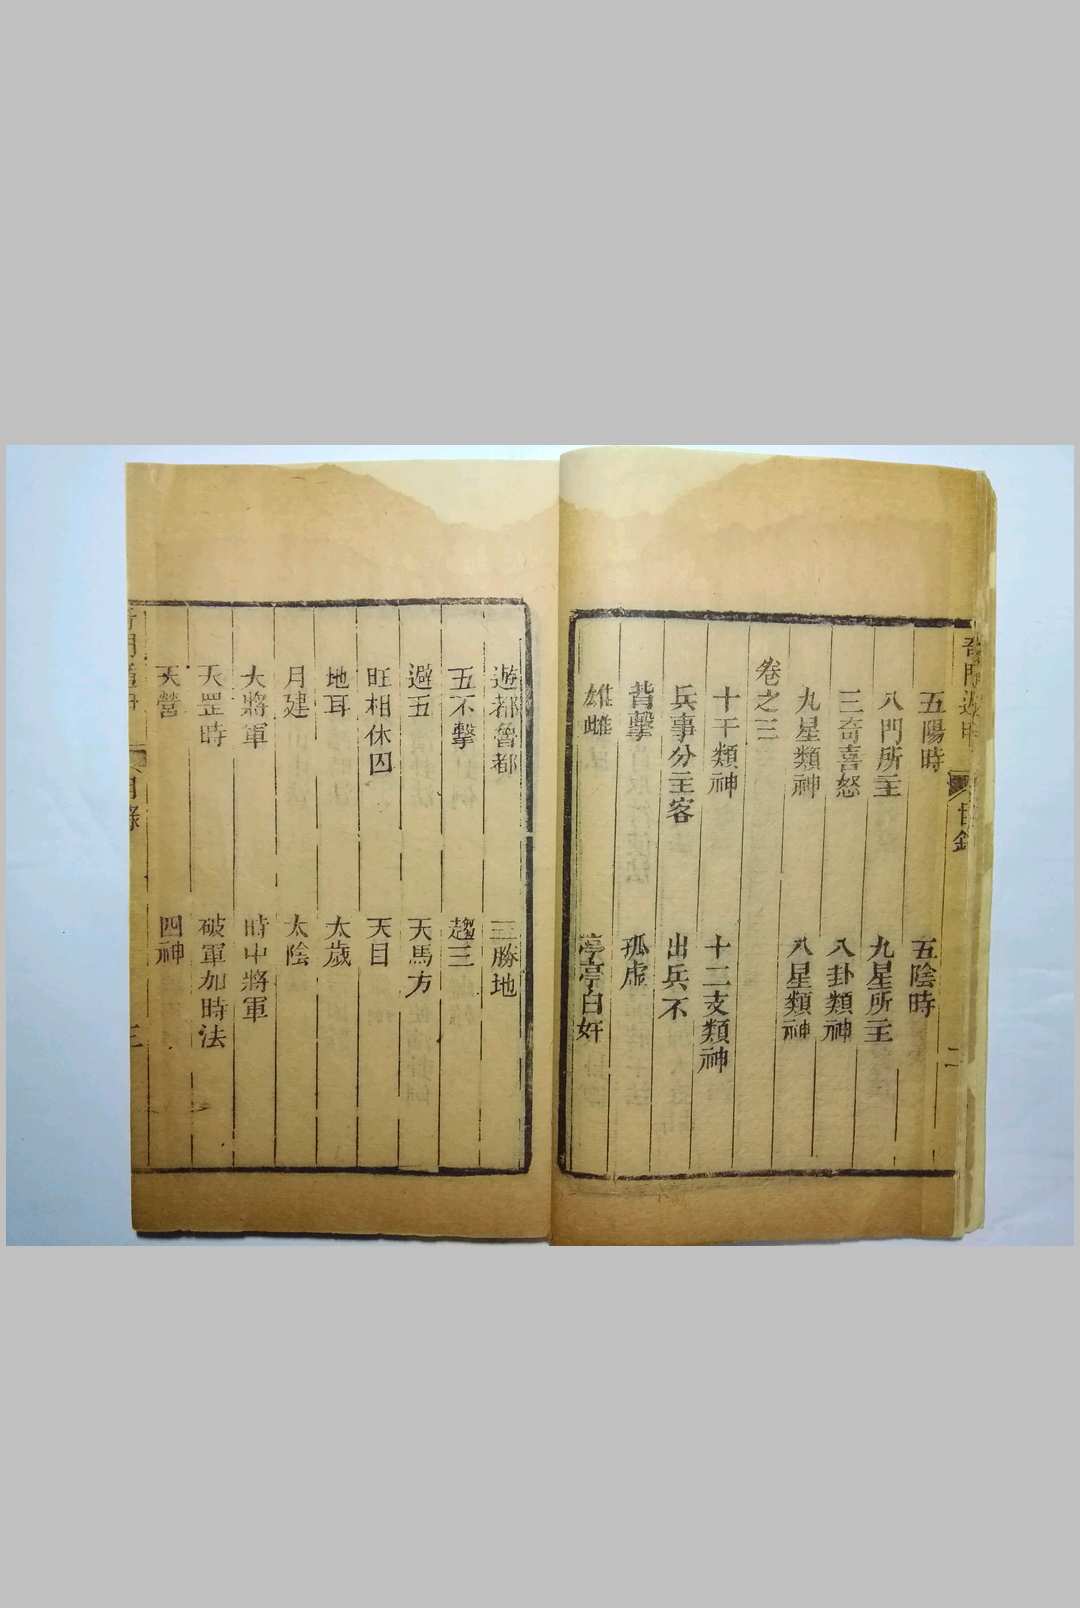 五陽時 五陰時
八門所主 九星所主
三奇喜怒 八卦類神
九星類神 八星類神
卷之三
十干類神 十二支類神
兵事分主客 出兵不
背擊 孤虛
雄雌 亭亭白奸
遊都魯都 三勝地
五不擊 趨三
避五 天馬方
旺相休囚 天目
地耳 太歲
月建 太陰
大將軍 時中將軍
天罡時 破軍加時法
天營 四神